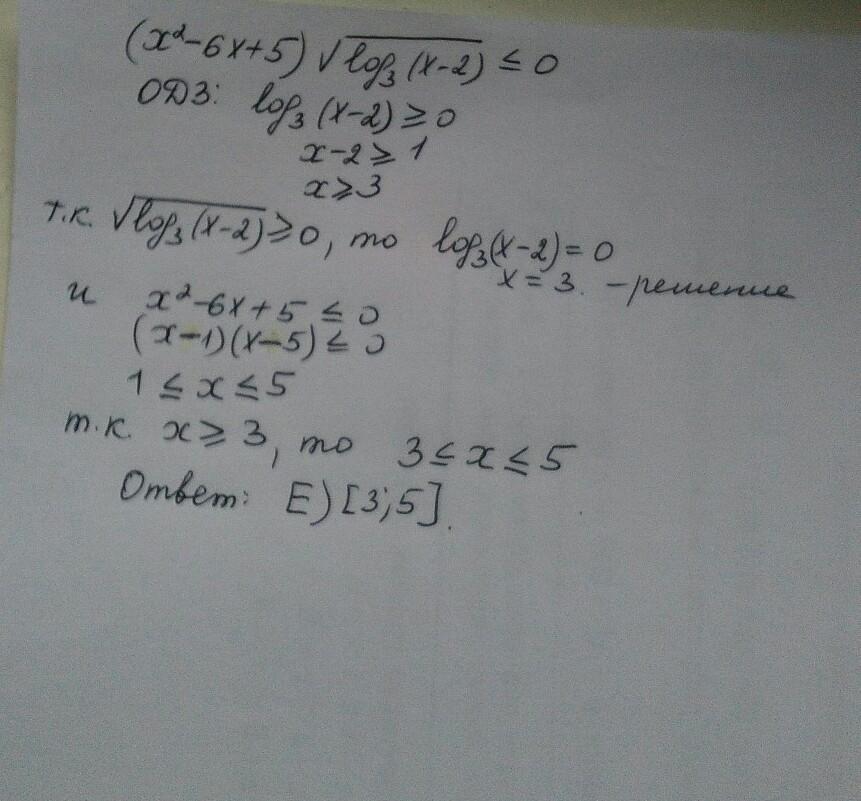 (x²-6x+5)√log₃(x-2) ≤ 0
ОДЗ: log₃(x-2) ≥ 0
x-2 ≥ 1
x ≥ 3
т.к. √log₃(x-2) ≥ 0, то log₃(x-2) = 0
x = 3. - решение
и x²-6x+5 ≤ 0
(x-1)(x-5) ≤ 0
1 ≤ x ≤ 5
т.к. x ≥ 3, то 3 ≤ x ≤ 5
Ответ: E) [3;5].